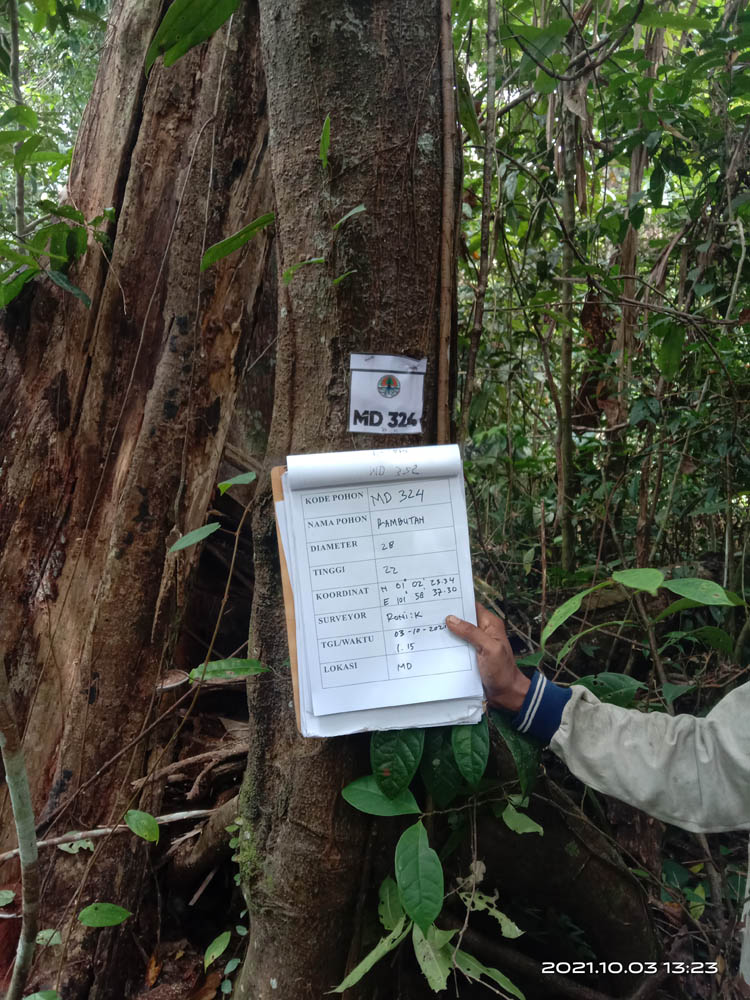 MD 324
MD 352
KODE POHON MD 324
NAMA POHON RAMBUTAN
DIAMETER 28
TINGGI 22
KOORDINAT N 01° 02' 23.34
E 101° 58' 37.30
SURVEYOR RONI:K
TGL/WAKTU 03-10-2021
1.15
LOKASI MD
2021.10.03 13:23